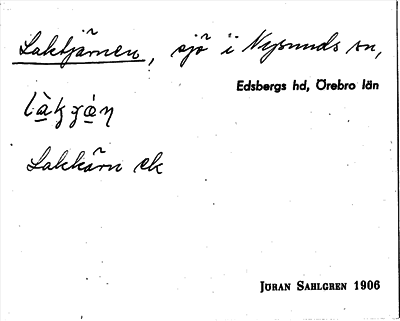 Laktjärnen, sjö i Nysunds sn,
Edsbergs hd, Örebro län
Lakkärn ek
JÖRAN SAHLGREN 1906